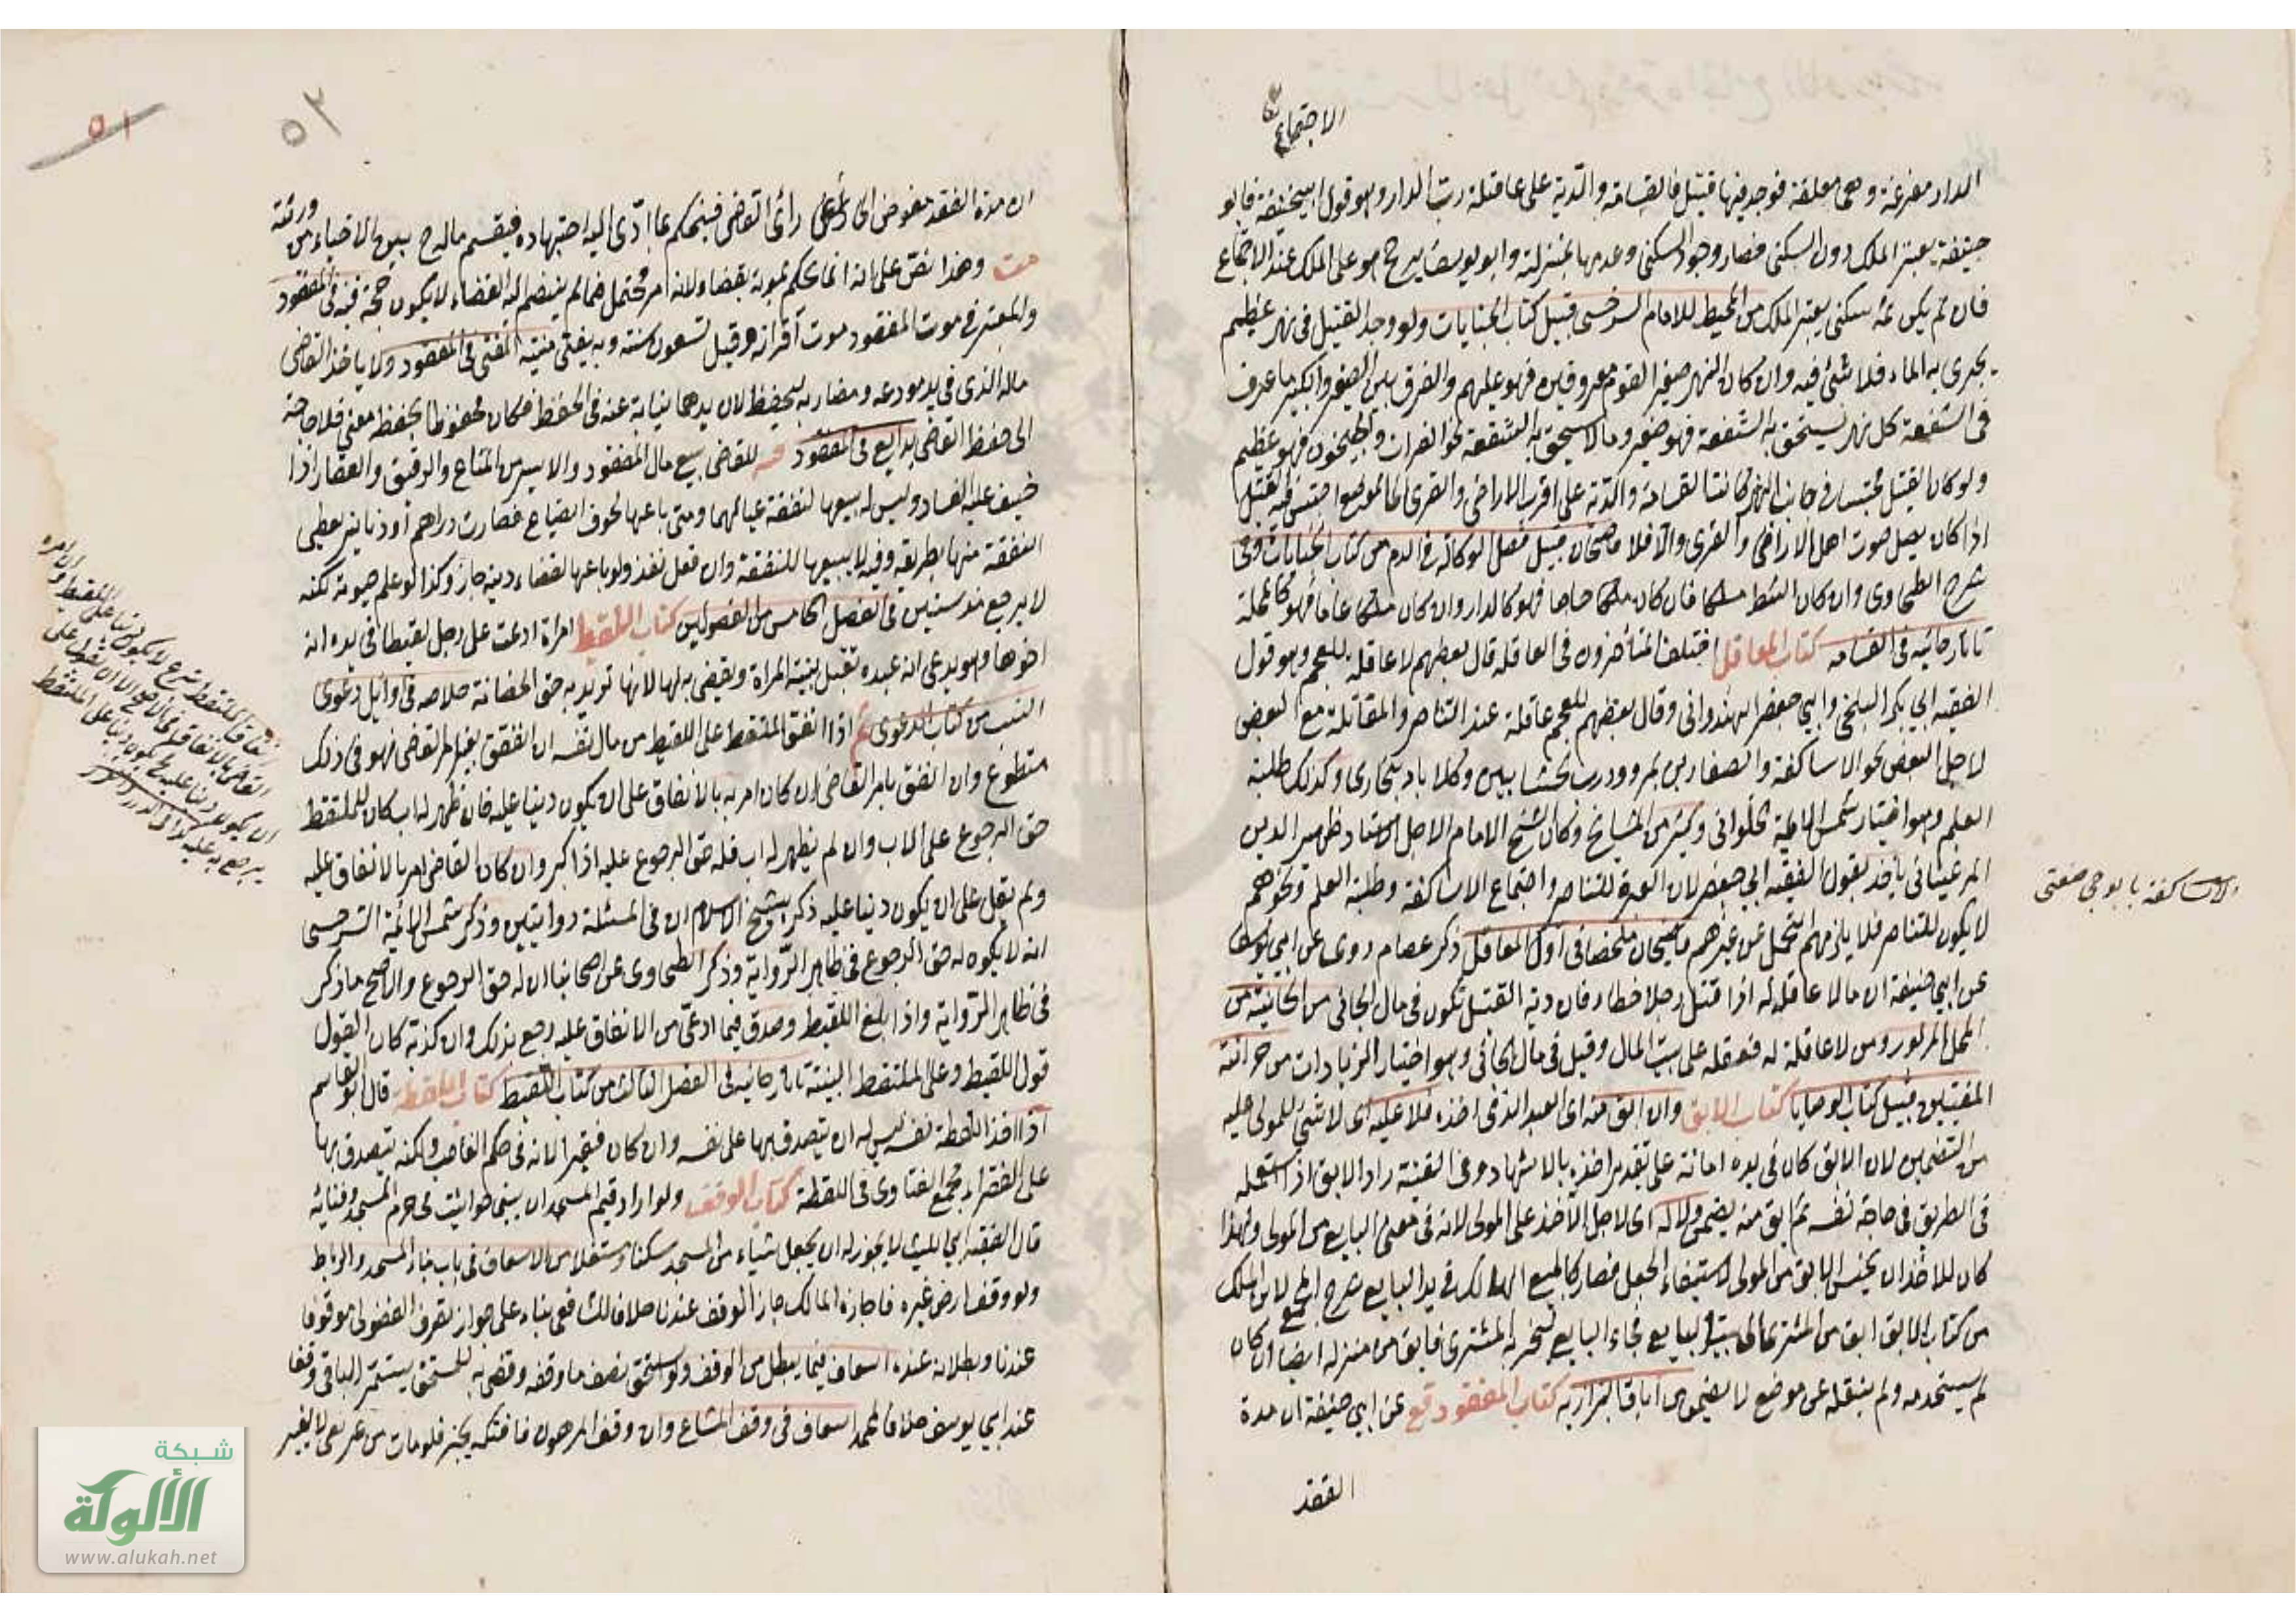 الاجتماع
الدار مفرغة وهى مغلقة فوجد فيها قتيل فالقسامة والدية على عاقلة رب الدار وهو قول ابيحنيفة فابو
حنيفة يعتبر الملك دون السكنى فصار وجود السكنى وعدمها بمنزلة وابو يوسف يرجح هو على الملك عند الاجتماع
فان لم يكن ثمه سكنى يعتبر الملك من المحيط للامام السرخسى قبيل كتاب الجنايات ولو وجد القتيل فى نهر عظيم
يجرى به الماء فلا شئ فيه وان كان النهر صغيرا لقوم معروفين فهو عليهم والفرق بين الصغير والكبير ما عرف
فى الشفعة كل نهر يستحق به الشفعة فهو صغير وما لا يستحق به الشفعة نحو الفرات والجيحون فهو عظيم
ولو كان القتيل محتبسا فى جانب النهر كانت القسامة والدية على اقرب الاراضى والقرى الى الموضع احتبس فيه القتيل
اذا كان يصل صوت اهل الاراضى والقرى والا فلا قاضيخان قبيل فصل الوكالة فى الدم من كتاب الجنايات وفى
شرح الطحاوى وان كان الشط ملكا فان كان ملكا خاصا فهو كالدار وان كان ملكا عاما فهو كالمحلة
تاتارخانيه فى القسامه كتاب المعاقل اختلف المتأخرون فى العاقلة قال بعضهم لا عاقلة للعجم وهو قول
الفقيه ابى بكر البلخى وابى جعفر الهندوانى وقال بعضهم للعجم عاقلة عند التناصر والمقاتلة مع البعض
لاجل البعض نحو الاساكفة والصفارين بمرو ودرب الخشابين وكلاباد ببخارى وكذلك طلبة
العلم وهو اختيار شمس الائمة الحلوانى وكثير من المشايخ وكان الشيخ الامام الاجل الاستاد ظهير الدين
المرغينانى يأخذ بقول الفقيه ابى جعفر لان العبرة للتناصر واجتماع الاساكفة وطلبة العلم ونحوهم
لا يكون للتناصر فلا يلزمهم التحمل عن غيرهم قاضيخان ملخصا فى اول المعاقل ذكر عصام روى عن ابى يوسف
عن ابى حنيفة ان ما لا عاقلة له اذا قتل رجلا خطاء فان دية القتيل تكون فى مال الجانى من الخانية من
المحل المزبور ومن لا عاقلة له فعقله على بيت المال وقيل فى مال الجانى وهو اختيار الزيادات من خزانة
المفتيين قبيل كتاب الوصايا كتاب الابق وان ابق منه اى العبد الذى اخذه فلا عليه اى لا شئ للمولى عليه
من التضمين لان الابق كان فى يده امانة على تقدير اخذه بالاشهاد وفى القنية راد الابق اذا استعمله
فى الطريق فى حاجة نفسه ثم ابق منه يضمن ولا له اى لاجل الآخذ على المولى لانه فى معنى البايع من المولى ولهذا
كان للاخذ ان يحبس الابق من المولى لاستيفاء الجعل فصار كالمبيع الهالك فى يد البايع شرح المجمع لابن الملك
من كتاب الابق ابق من المشترى الى بيت البايع فجاء البايع ليخبر به المشترى فابق من منزله ايضا ان كان
لم يستخدمه ولم ينقله عن موضع لا يضمن اباق البزازيه كتاب المفقود قع عن ابى حنيفة ان مدة
الفقد
الاساكفة بابوجى صنعتى
٥٢
٥١
ان مدة الفقد مفوض الى رأى القاضى فيحكم بما ادى اليه اجتهاده فيقسم ماله ح بين الاحياء من ورثته
وهذا نص على انه انما يحكم بموته بقضاء لانه امر محتمل فما لم ينضم اليه القضاء لا يكون حجة قنيه فى المفقود
والمعتبر فى موت المفقود موت اقرانه وقيل تسعون سنة وبه يفتى منية المفتى فى المفقود ولا ياخذ القاضى
ماله الذى فى يد مودعه ومضاربه ليحفظ لان يدهما نيابة عنه فى الحفظ فكان محفوظا بحفظه معنى فلا حاجة
الى حفظ القاضى بدايع فى المفقود للقاضى بيع مال المفقود والاسير من المتاع والرقيق والعقار اذا
خيف عليه الفساد وليس له بيعها لنفقة عيالهما ومتى باعها لخوف الضياع فصارت دراهم او دنانير يعطى
النفقة منها بطريقه وفيه لا يبيعها للنفقة وان فعل نفذ ولو باعها لقضاء دينه جاز وكذا لو علم حيوته لكنه
لا يرجع منذ سنتين فى الفصل الخامس من الفصولين كتاب اللقيط امرأة ادعت على رجل لقيطا فى يده انه
اخوها وهو يدعى انه عبده تقبل بينة المراة ويقضى به لها لانها تريد به حق الحضانة خلاصه فى اوائل دعوى
النسب من كتاب الدعوى اذا انفق الملتقط على اللقيط من مال نفسه ان انفق بغير امر القاضى فهو فى ذلك
متطوع وان انفق بامر القاضى ان كان امر به بالانفاق على ان يكون دينا عليه فان ظهر له اب كان للملتقط
حق الرجوع على الاب وان لم يظهر له اب فله حق الرجوع عليه اذا كبر وان كان القاضى امر بالانفاق عليه
ولم يقل على ان يكون دينا عليه ذكر شيخ الاسلام ان فى المسئلة روايتين وذكر شمس الائمة السرخسى
انه لا يكون له حق الرجوع فى ظاهر الرواية وذكر الطحاوى عن اصحابنا ان له حق الرجوع والاصح ما ذكر
فى ظاهر الرواية واذا بلغ اللقيط وصدق فيما ادعى من الانفاق عليه رجع بذلك وان كذبه كان القول
قول اللقيط وعلى الملتقط البينة تاتارخانيه فى الفصل الثالث من كتاب اللقيط كتاب اللقطه قال ابو القاسم
اذا اخذ اللقطة لنفسه ليس له ان يتصدق بها على نفسه وان كان فقيرا لانه فى حكم الغاصب ولكنه يتصدق بها
على الفقراء مجمع الفتاوى فى اللقطة كتاب الوقف ولو اراد قيم المسجد ان يبنى حوانيت فى حرم المسجد وفنائه
قال الفقيه ابى الليث لا يجوز له ان يجعل شياء من المسجد سكنا ومستغلا من الاسعاف فى باب بناء المسجد والرباط
ولو وقف ارض غيره فاجازه المالك جاز الوقف عندنا خلافا للشافعى بناء على جواز تصرف الفضولى موقوفا
عندنا وبطلانه عنده اسعاف فيما يبطل من الوقف ولو استحق نصف ما وقفه وقضى به للمستحق يستمر الباقى وقفا
عند ابى يوسف خلافا لمحمد اسعاف فى وقف المشاع وان وقف المرهون فافتكه يجز فلو مات عن
شبكة
الألوكة
www.alukah.net